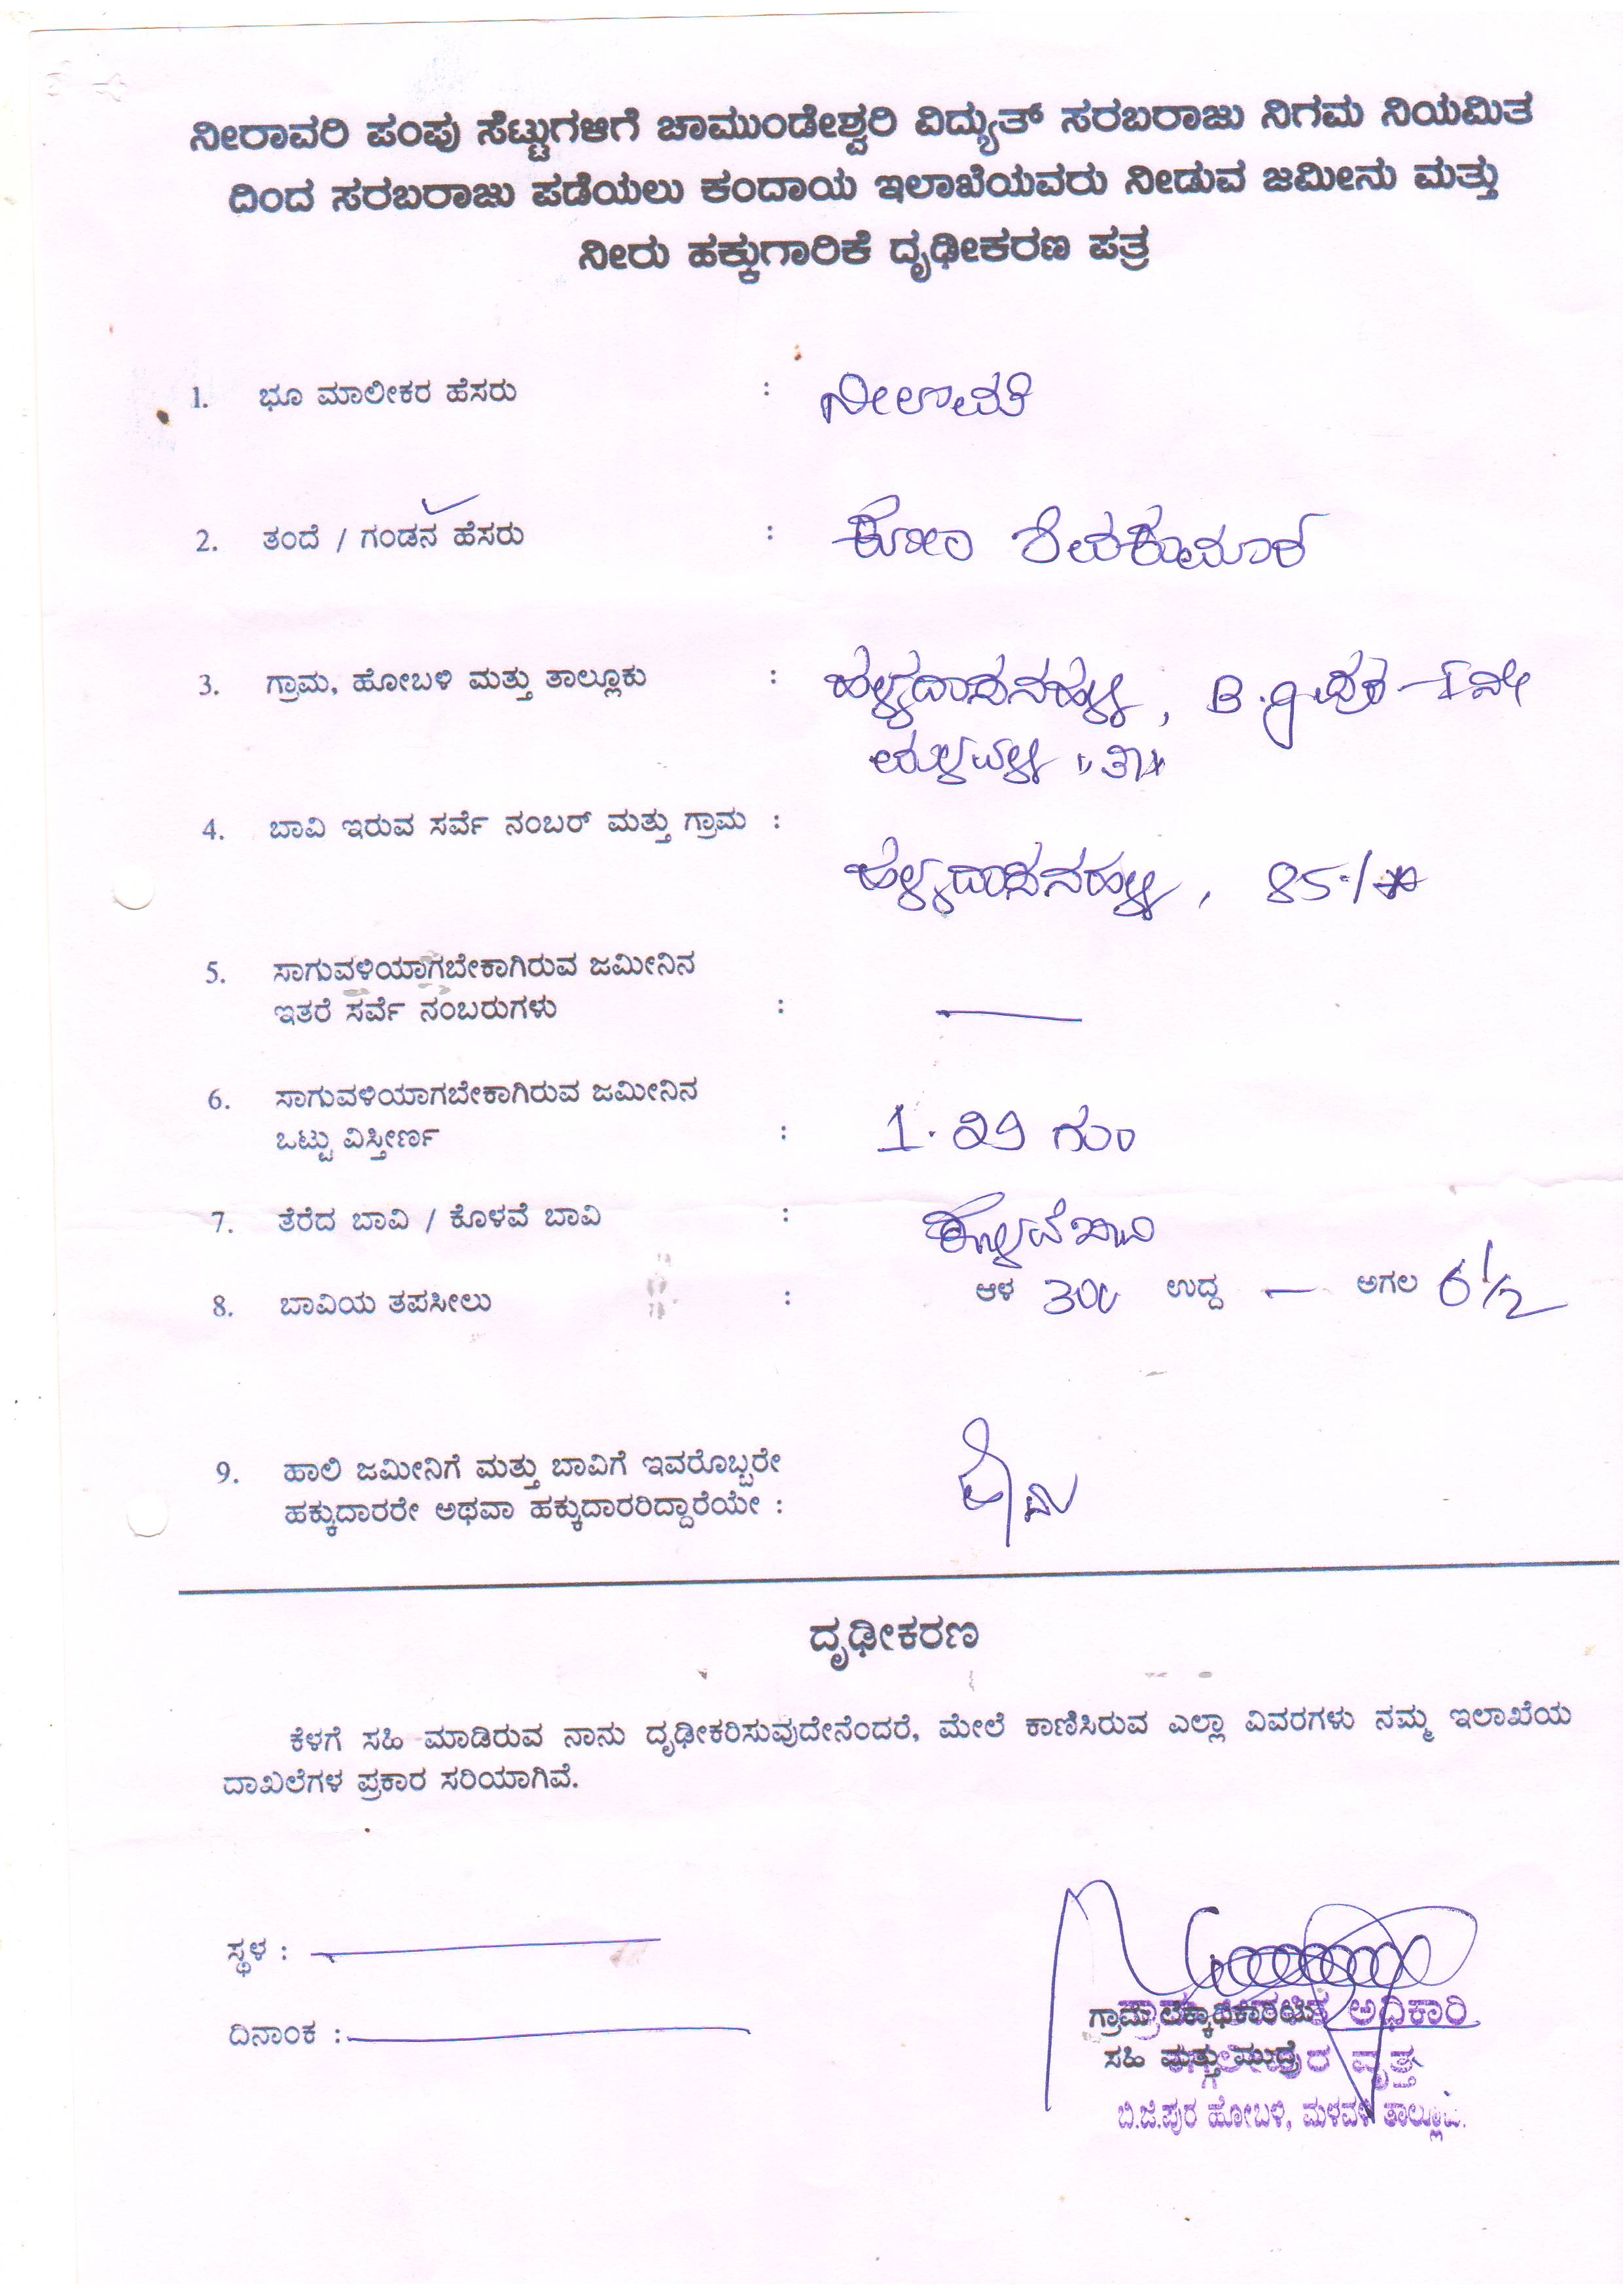 ನೀರಾವರಿ ಪಂಪು ಸೆಟ್ಟುಗಳಿಗೆ ಚಾಮುಂಡೇಶ್ವರಿ ವಿದ್ಯುತ್ ಸರಬರಾಜು ನಿಗಮ ನಿಯಮಿತ
ದಿಂದ ಸರಬರಾಜು ಪಡೆಯಲು ಕಂದಾಯ ಇಲಾಖೆಯವರು ನೀಡುವ ಜಮೀನು ಮತ್ತು
ನೀರು ಹಕ್ಕುಗಾರಿಕೆ ದೃಢೀಕರಣ ಪತ್ರ
1. ಭೂ ಮಾಲೀಕರ ಹೆಸರು : ನೀಲಾವತಿ
2. ತಂದೆ / ಗಂಡನ ಹೆಸರು : ಕೋಂ
3. ಗ್ರಾಮ, ಹೋಬಳಿ ಮತ್ತು ತಾಲ್ಲೂಕು : B.g ಪುರ
ಮಳವಳ್ಳಿ ತಾ||
4. ಬಾವಿ ಇರುವ ಸರ್ವೆ ನಂಬರ್ ಮತ್ತು ಗ್ರಾಮ :
85/
5. ಸಾಗುವಳಿಯಾಗಬೇಕಾಗಿರುವ ಜಮೀನಿನ
ಇತರೆ ಸರ್ವೆ ನಂಬರುಗಳು : —
6. ಸಾಗುವಳಿಯಾಗಬೇಕಾಗಿರುವ ಜಮೀನಿನ
ಒಟ್ಟು ವಿಸ್ತೀರ್ಣ : 1. 29 ಗುಂ
7. ತೆರೆದ ಬಾವಿ / ಕೊಳವೆ ಬಾವಿ : ಕೊಳವೆ ಬಾವಿ
8. ಬಾವಿಯ ತಪಸೀಲು : ಆಳ 300 ಉದ್ದ — ಅಗಲ 6 1/2
9. ಹಾಲಿ ಜಮೀನಿಗೆ ಮತ್ತು ಬಾವಿಗೆ ಇವರೊಬ್ಬರೇ
ಹಕ್ಕುದಾರರೇ ಅಥವಾ ಹಕ್ಕುದಾರರಿದ್ದಾರೆಯೇ :
ದೃಢೀಕರಣ
ಕೆಳಗೆ ಸಹಿ ಮಾಡಿರುವ ನಾನು ದೃಢೀಕರಿಸುವುದೇನೆಂದರೆ, ಮೇಲೆ ಕಾಣಿಸಿರುವ ಎಲ್ಲಾ ವಿವರಗಳು ನಮ್ಮ ಇಲಾಖೆಯ
ದಾಖಲೆಗಳ ಪ್ರಕಾರ ಸರಿಯಾಗಿವೆ.
ಸ್ಥಳ :
ದಿನಾಂಕ :
ಗ್ರಾಮ ಲೆಕ್ಕಾಧಿಕಾರಿಯ ಅಧಿಕಾರಿ
ಸಹಿ ಮತ್ತು ಮುದ್ರೆ ವೃತ್ತ
ಬಿ.ಜಿ.ಪುರ ಹೋಬಳಿ, ಮಳವಳ್ಳಿ ತಾಲ್ಲೂಕು.